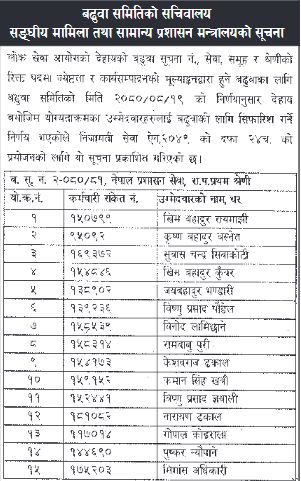 बढुवा समितिको सचिवालय
सङ्घीय मामिला तथा सामान्य प्रशासन मन्त्रालयको सूचना
लोक सेवा आयोगको देहायको बढुवा सूचना नं., सेवा, समूह र श्रेणीको
रिक्त पदमा ज्येष्ठता र कार्यसम्पादनको मूल्याङ्कनद्वारा हुने बढुवाका लागि
बढुवा समितिको मिति २०८०/०८/१९ को निर्णयानुसार देहाय
बमोजिम योग्यताक्रमका उम्मेदवारहरूलाई बढुवाको लागि सिफारिश गर्ने
निर्णय भएकोले निजामती सेवा ऐन, २०४९ को दफा २४च. को
प्रयोजनको लागि यो सूचना प्रकाशित गरिएको छ।
ब. सू. नं. २-०८०/८१, नेपाल प्रशासन सेवा, रा.प.प्रथम श्रेणी
यो.क्र.नं. कर्मचारी संकेत नं. उम्मेदवारको नाम, थर
१ १५०७९९ खिम बहादुर रायमाझी
२ ९५०९२ कृष्ण बहादुर बस्नेत
३ १६९३७२ सुवास चन्द्र सिवाकोटी
४ १५४८४६ खिम बहादुर कुँवर
५ १३८९०२ जयबहादुर भण्डारी
६ १३९२३६ विष्णु प्रसाद पौडेल
७ १५८५३९ विनोद लामिछाने
८ १५८३१४ रामबाबु पुरी
९ १५४१७३ केशवराज ढकाल
१० १५९१५६ कमान सिंह खत्री
११ १५२४४१ विष्णु प्रसाद ज्ञवाली
१२ १८१०८२ नारायण ढकाल
१३ ११७०१४ गोपाल कोइराला
१४ १४४६९० पुष्कर न्यौपाने
१५ १७५२०३ मिमांस अधिकारी